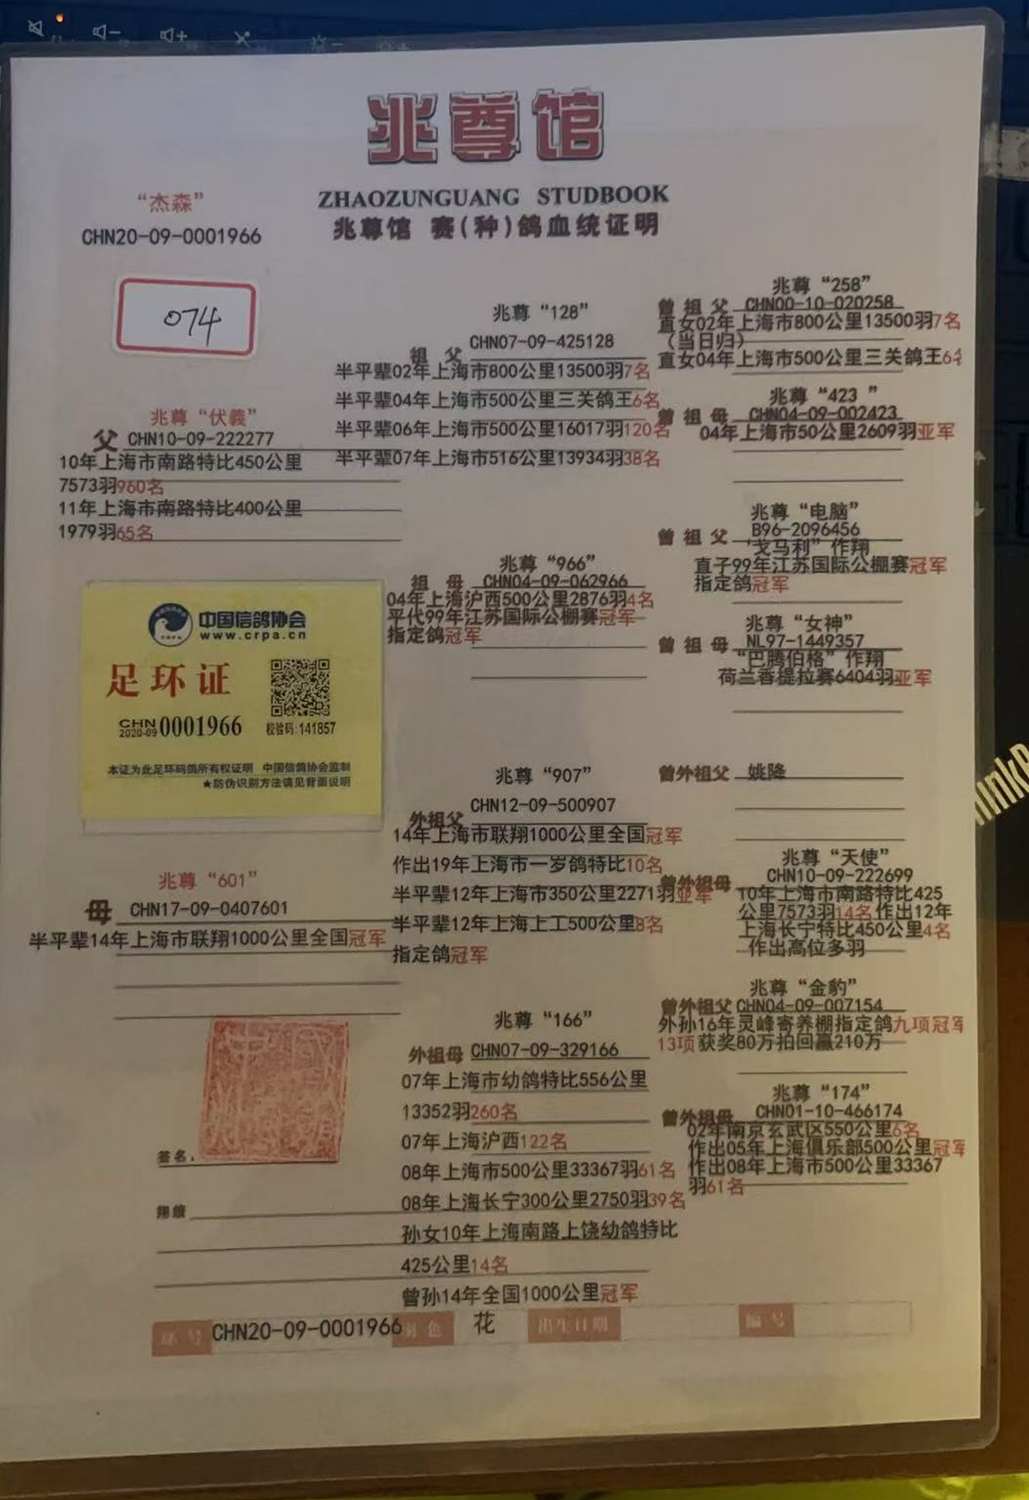 兆尊馆
ZHAOZUNGUANG STUDBOOK
兆尊馆 赛(种)鸽血统证明
“杰森”
CHN20-09-0001966
074
兆尊“伏義”
父 CHN10-09-222277
10年上海市南路特比450公里
7573羽960名
11年上海市南路特比400公里
1979羽65名
中国信鸽协会
www.crpa.cn
足环证
CHN
2020-09 0001966
校验码:141857
本证为此足环码鸽所有权证明 中国信鸽协会监制
★防伪识别方法请见背面说明
兆尊“601”
母 CHN17-09-0407601
半平辈14年上海市联翔1000公里全国冠军
签名
翔绩
兆尊“128”
祖父 CHN07-09-425128
半平辈02年上海市800公里13500羽7名
半平辈04年上海市500公里三关鸽王6名
半平辈06年上海市500公里16017羽120名
半平辈07年上海市516公里13934羽38名
兆尊“966”
祖母 CHN04-09-062966
04年上海沪西500公里2876羽4名
平代99年江苏国际公棚赛冠军
指定鸽冠军
兆尊“907”
外祖父 CHN12-09-500907
14年上海市联翔1000公里全国冠军
作出19年上海市一岁鸽特比10名
半平辈12年上海市350公里2271羽亚军
半平辈12年上海上工500公里8名
指定鸽冠军
兆尊“166”
外祖母 CHN07-09-329166
07年上海市幼鸽特比556公里
13352羽260名
07年上海沪西122名
08年上海市500公里33367羽61名
08年上海长宁300公里2750羽39名
孙女10年上海南路上饶幼鸽特比
425公里14名
曾孙14年全国1000公里冠军
兆尊“258”
曾祖父 CHN00-10-020258
直女02年上海市800公里13500羽7名
（当日归）
直女04年上海市500公里三关鸽王6名
兆尊“423 ”
曾祖母 CHN04-09-002423
04年上海市50公里2609羽亚军
兆尊“电脑”
曾祖父 B96-2096456
“戈马利”作翔
直子99年江苏国际公棚赛冠军
指定鸽冠军
兆尊“女神”
曾祖母 NL97-1449357
“巴腾伯格”作翔
荷兰香提拉赛6404羽亚军
曾外祖父 姚降
兆尊“天使”
曾外祖母 CHN10-09-222699
10年上海市南路特比425
公里7573羽14名作出12年
上海长宁特比450公里4名
作出高位多羽
兆尊“金豹”
曾外祖父 CHN04-09-007154
外孙16年灵峰寄养棚指定鸽九项冠军
13项获奖80万拍回赢210万
兆尊“174”
曾外祖母 CHN01-10-466174
02年南京玄武区550公里6名
作出05年上海俱乐部500公里冠军
作出08年上海市500公里33367
羽61名
环号 CHN20-09-0001966 羽色 花 出生日期 编号